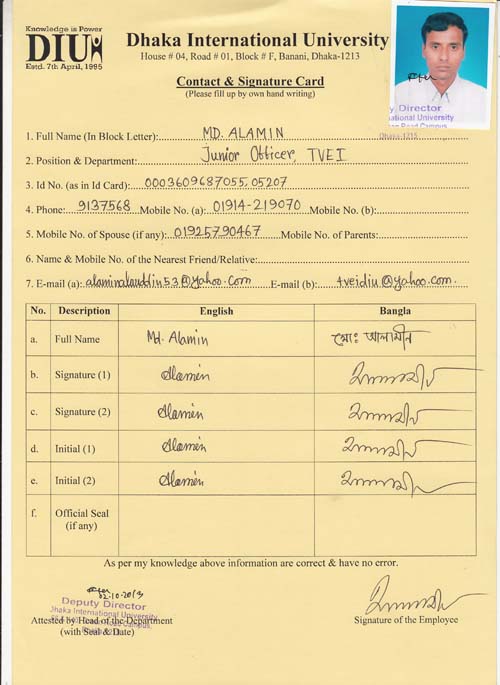 Knowledge is Power
DIU
Estd. 7th April, 1995
Dhaka International University
House # 04, Road # 01, Block # F, Banani, Dhaka-1213
Contact & Signature Card
(Please fill up by own hand writing)
y Director
national University
Road Campus
Dhaka-1215
1. Full Name (In Block Letter): MD. ALAMIN
2. Position & Department: Junior Officer, TVEI
3. Id No. (as in Id Card): 0003609687055.05207
4. Phone: 9137568 Mobile No. (a): 01914-219070 Mobile No. (b):
5. Mobile No. of Spouse (if any): 01925790467 Mobile No. of Parents:
6. Name & Mobile No. of the Nearest Friend/Relative:
7. E-mail (a): alaminalauddin53@yahoo.com E-mail (b): tveidiu@yahoo.com.
No. Description English Bangla
a. Full Name Md. Alamin মোঃ আলামীন
b. Signature (1) Alamin
c. Signature (2) Alamin
d. Initial (1) Alamin
e. Initial (2) Alamin
f. Official Seal
(if any)
As per my knowledge above information are correct & have no error.
02-10-2013
Deputy Director
Dhaka International University
Attested by Head of the Department
(with Seal & Date)
Signature of the Employee